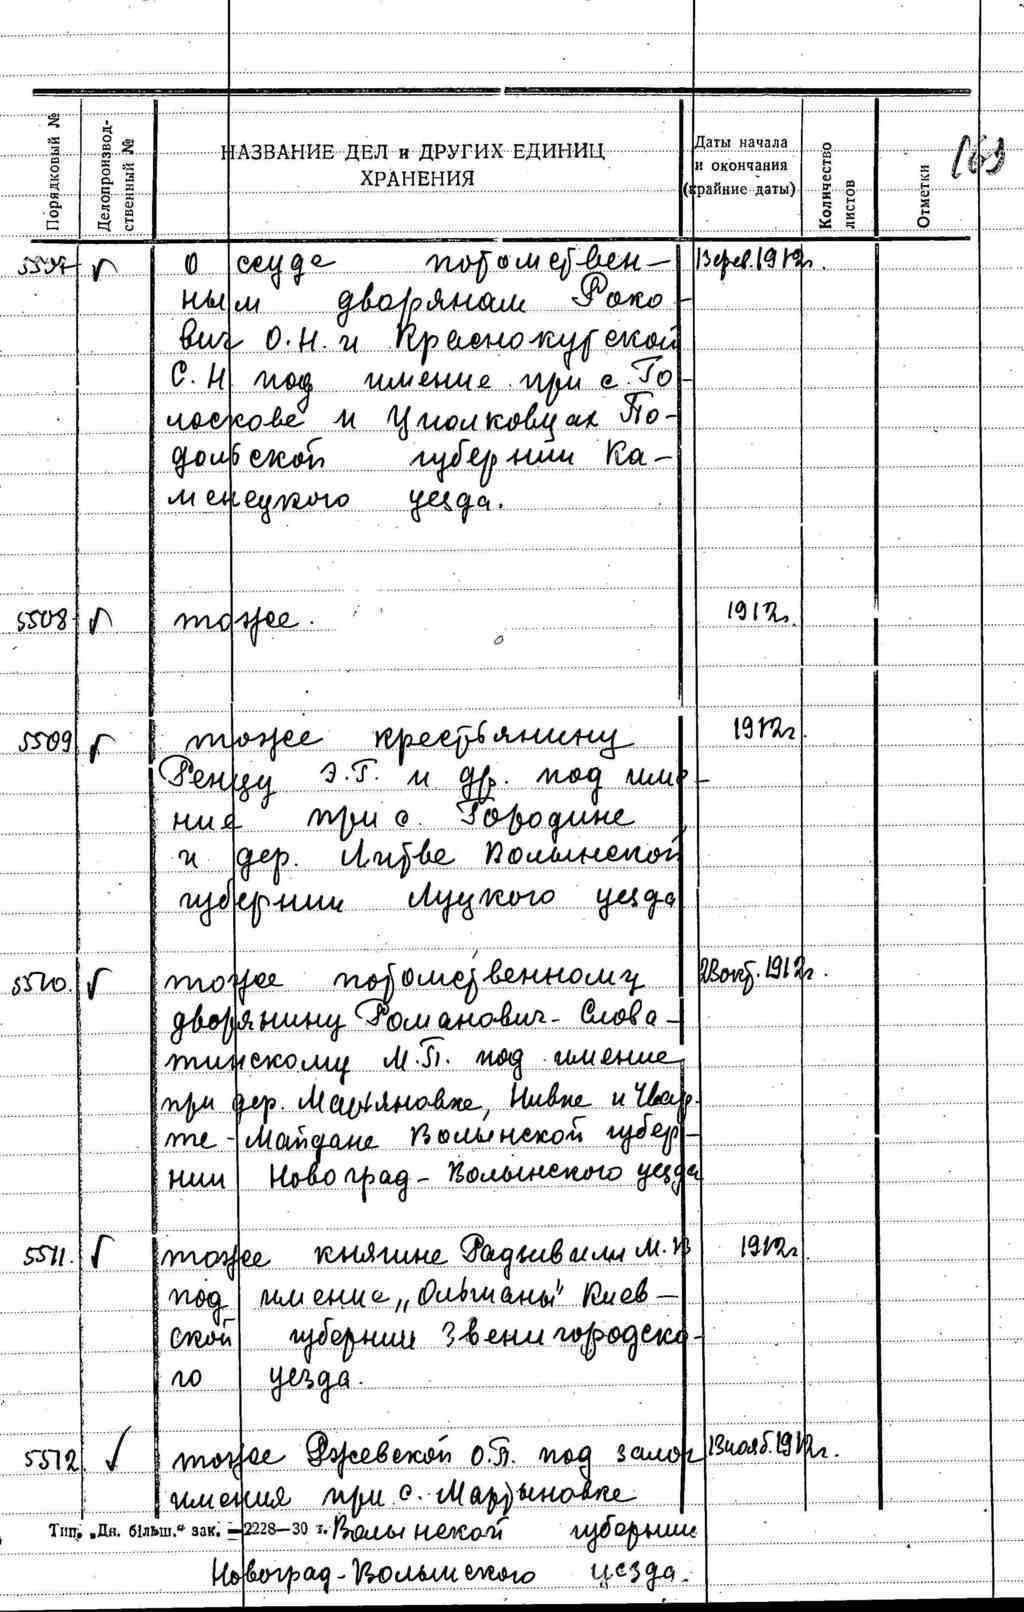 Порядковый №
Делопроизвод-
ственный №
НАЗВАНИЕ ДЕЛ и ДРУГИХ ЕДИНИЦ
ХРАНЕНИЯ
Даты начала
и окончания
(крайние даты)
Количество
листов
Отметки
5507 О ссуде потомствен-
ным дворянам Рако-
вич О.Н. и Краснокутской
С.Н под имение при с. Го-
лоскове и Цполковцах По-
дольской губернии Ка-
менецкого уезда.
5508 тоже. 1912г.
5509 тоже крестьянину 1912г
Ренцу Э.Г. и др. под име-
ния при с. Городине
и дер. Литве Волынской
губернии Луцкого уезда
5510. тоже потомственному 23 окт. 1912г.
дворянину Романович-Слова-
тинскому М.П. под имение
при дер. Мартяновке, Нивке и Чвар-
те-Майдане Волынской губер-
нии Новоград-Волынского уезда
5511. тоже княгине Радзивилл М. 1912г
под имение „Ольшаны" Киев-
ской губернии Звенигородско-
го уезда.
5512 тоже Ржевской О.П. под залог 13 нояб. 1912г.
имения при с. Мартыновке
Тип. „Дн. більш." зак. — 2228—30 г. Волынской губернии
Новоград-Волынского уезда.